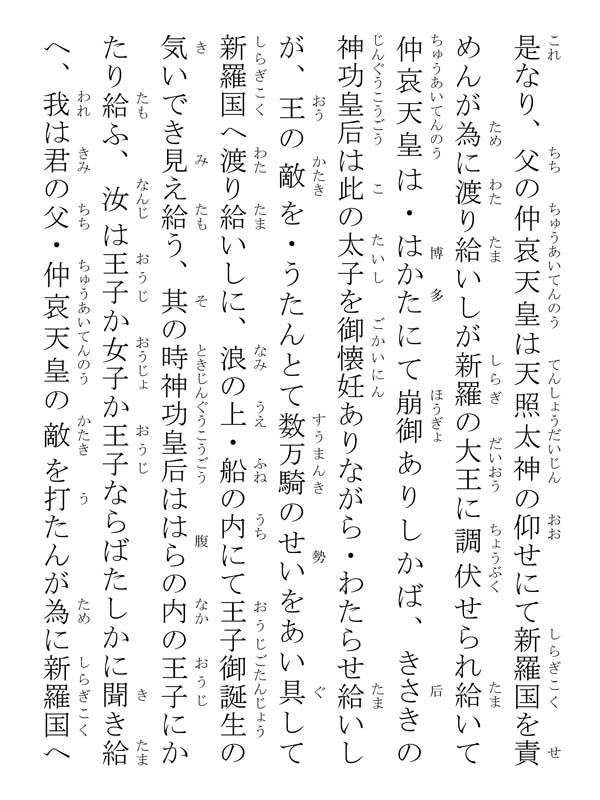 是なり、父の仲哀天皇は天照太神の仰せにて新羅国を責
めんが為に渡り給いしが新羅の大王に調伏せられ給いて
仲哀天皇は・はかたにて崩御ありしかば、きさきの
神功皇后は此の太子を御懐妊ありながら・わたらせ給いし
が、王の敵を・うたんとて数万騎のせいをあい具して
新羅国へ渡り給いしに、浪の上・船の内にて王子御誕生の
気いでき見え給う、其の時神功皇后ははらの内の王子にか
たり給ふ、汝は王子か女子か王子ならばたしかに聞き給
へ、我は君の父・仲哀天皇の敵を打たんが為に新羅国へ